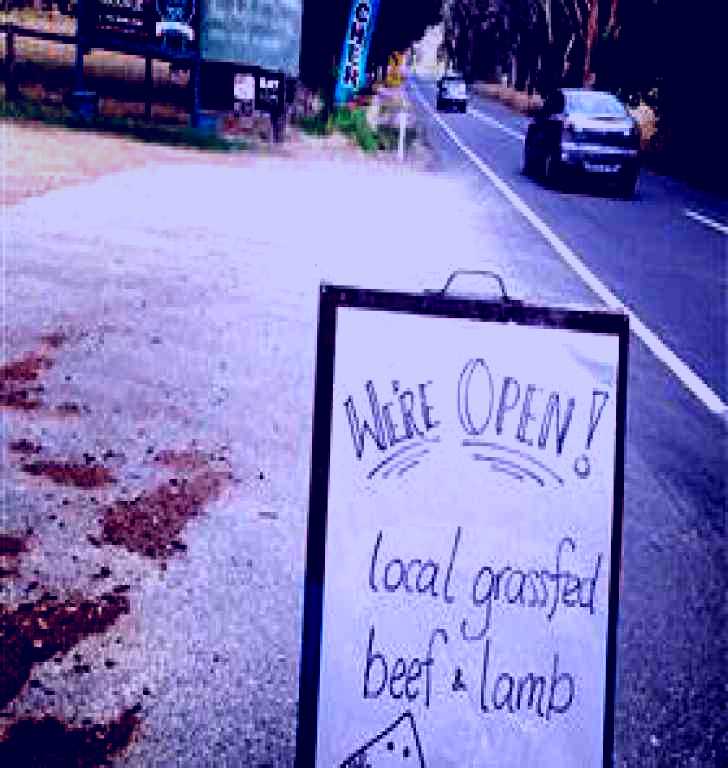 WE'RE OPEN!
local grassfed
beef & lamb